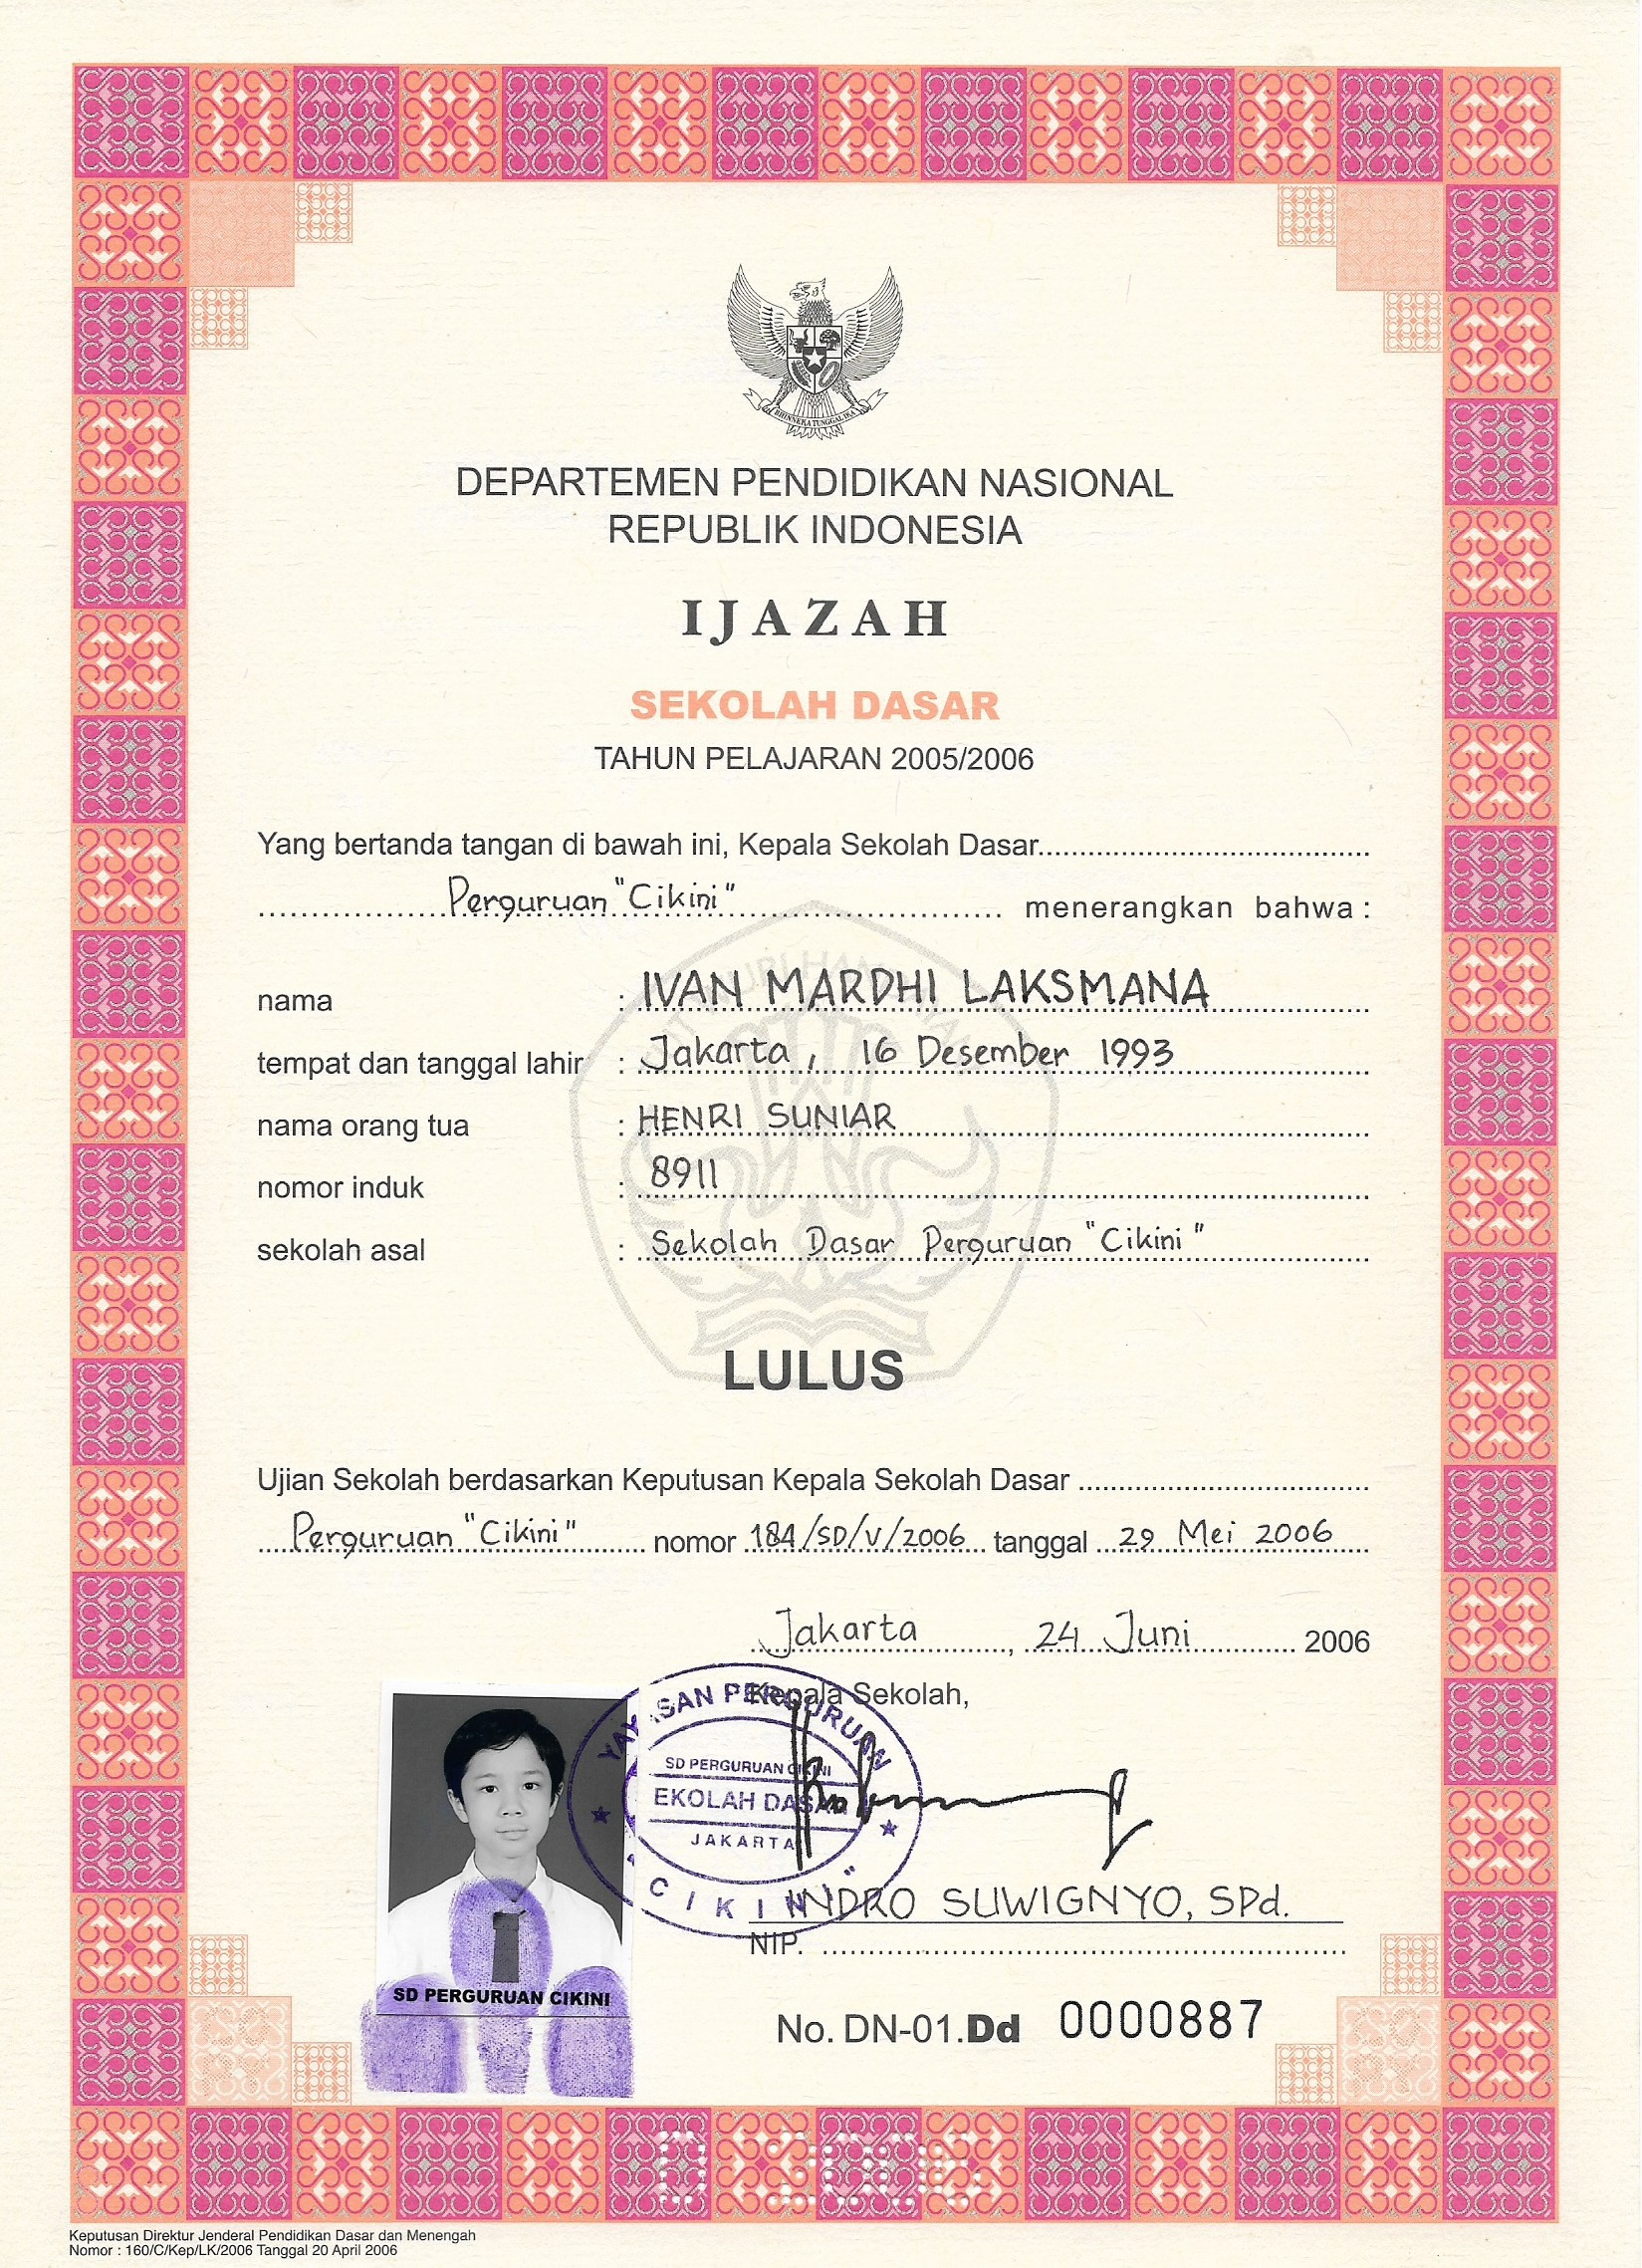 BHINNEKA TUNGGAL IKA
DEPARTEMEN PENDIDIKAN NASIONAL
REPUBLIK INDONESIA
IJAZAH
SEKOLAH DASAR
TAHUN PELAJARAN 2005/2006
Yang bertanda tangan di bawah ini, Kepala Sekolah Dasar
Perguruan "Cikini" menerangkan bahwa :
nama : IVAN MARDHI LAKSMANA
tempat dan tanggal lahir : Jakarta, 16 Desember 1993
nama orang tua : HENRI SUNIAR
nomor induk : 8911
sekolah asal : Sekolah Dasar Perguruan "Cikini"
LULUS
Ujian Sekolah berdasarkan Keputusan Kepala Sekolah Dasar
Perguruan "Cikini" nomor 184/SD/V/2006 tanggal 29 Mei 2006
Jakarta, 24 Juni 2006
Kepala Sekolah,
YAYASAN PERGURUAN
SD PERGURUAN CIKINI
EKOLAH DASAR
JAKARTA
"CIKINI"
INDRO SUWIGNYO, SPd.
NIP.
SD PERGURUAN CIKINI
No. DN-01.Dd 0000887
Keputusan Direktur Jenderal Pendidikan Dasar dan Menengah
Nomor : 160/C/Kep/LK/2006 Tanggal 20 April 2006